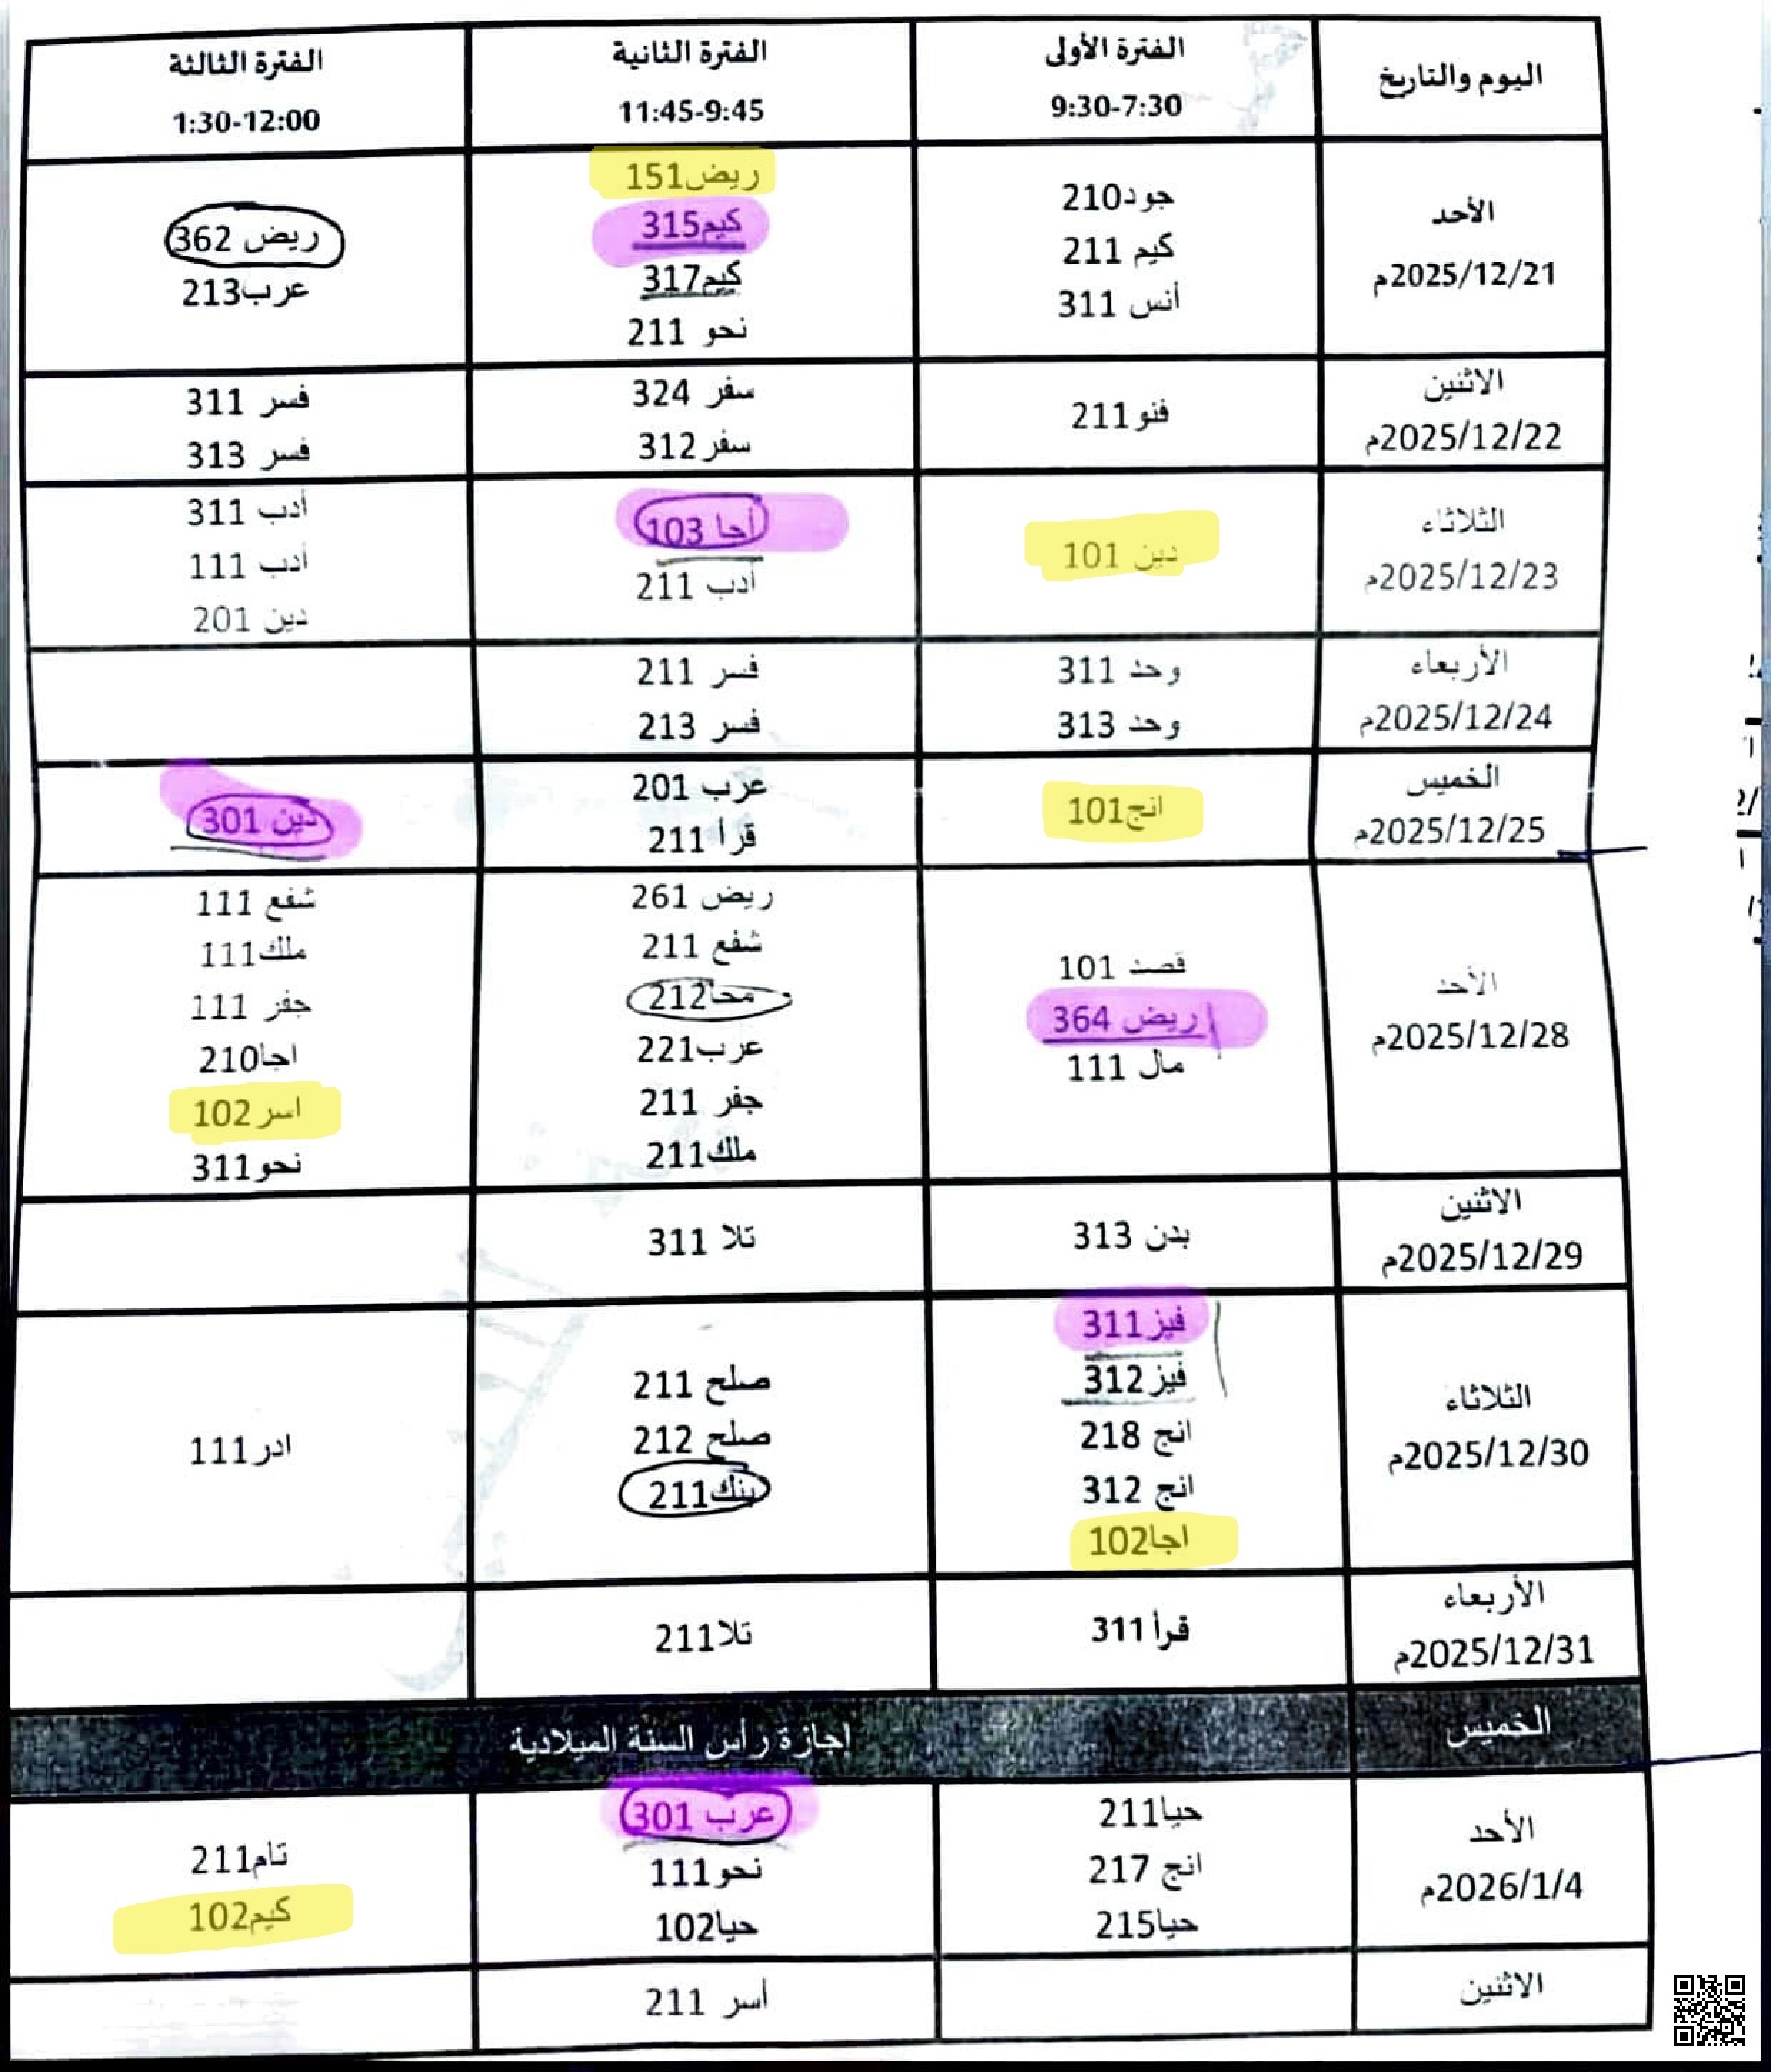 اليوم والتاريخ
الفترة الأولى
9:30-7:30
الفترة الثانية
11:45-9:45
الفترة الثالثة
1:30-12:00
الأحد
2025/12/21م
جود210
كيم 211
أنس 311
ريض151
كيم315
كيم317
نحو 211
ريض 362
عرب213
الاثنين
2025/12/22م
فنو211
سفر 324
سفر312
فسر 311
فسر 313
الثلاثاء
2025/12/23م
دين 101
أحا 103
أدب 211
أدب 311
أدب 111
دين 201
الأربعاء
2025/12/24م
وحد 311
وحد 313
فسر 211
فسر 213
الخميس
2025/12/25م
انج101
عرب 201
قرأ 211
دين 301
الأحد
2025/12/28م
قصد 101
ريض 364
مال 111
ريض 261
شفع 211
محا212
عرب221
جفر 211
ملك211
شفع 111
ملك111
جفر 111
احا210
اسر 102
نحو311
الاثنين
2025/12/29م
بدن 313
تلا 311
الثلاثاء
2025/12/30م
فيز311
فيز312
انج 218
انج 312
اجا102
صلح 211
صلح 212
بنك211
ادر111
الأربعاء
2025/12/31م
قرأ 311
تلا211
الخميس
اجازة رأس السنة الميلادية
الأحد
2026/1/4م
حيا211
انج 217
حيا215
عرب 301
نحو111
حيا102
تام211
كيم102
الاثنين
أسر 211